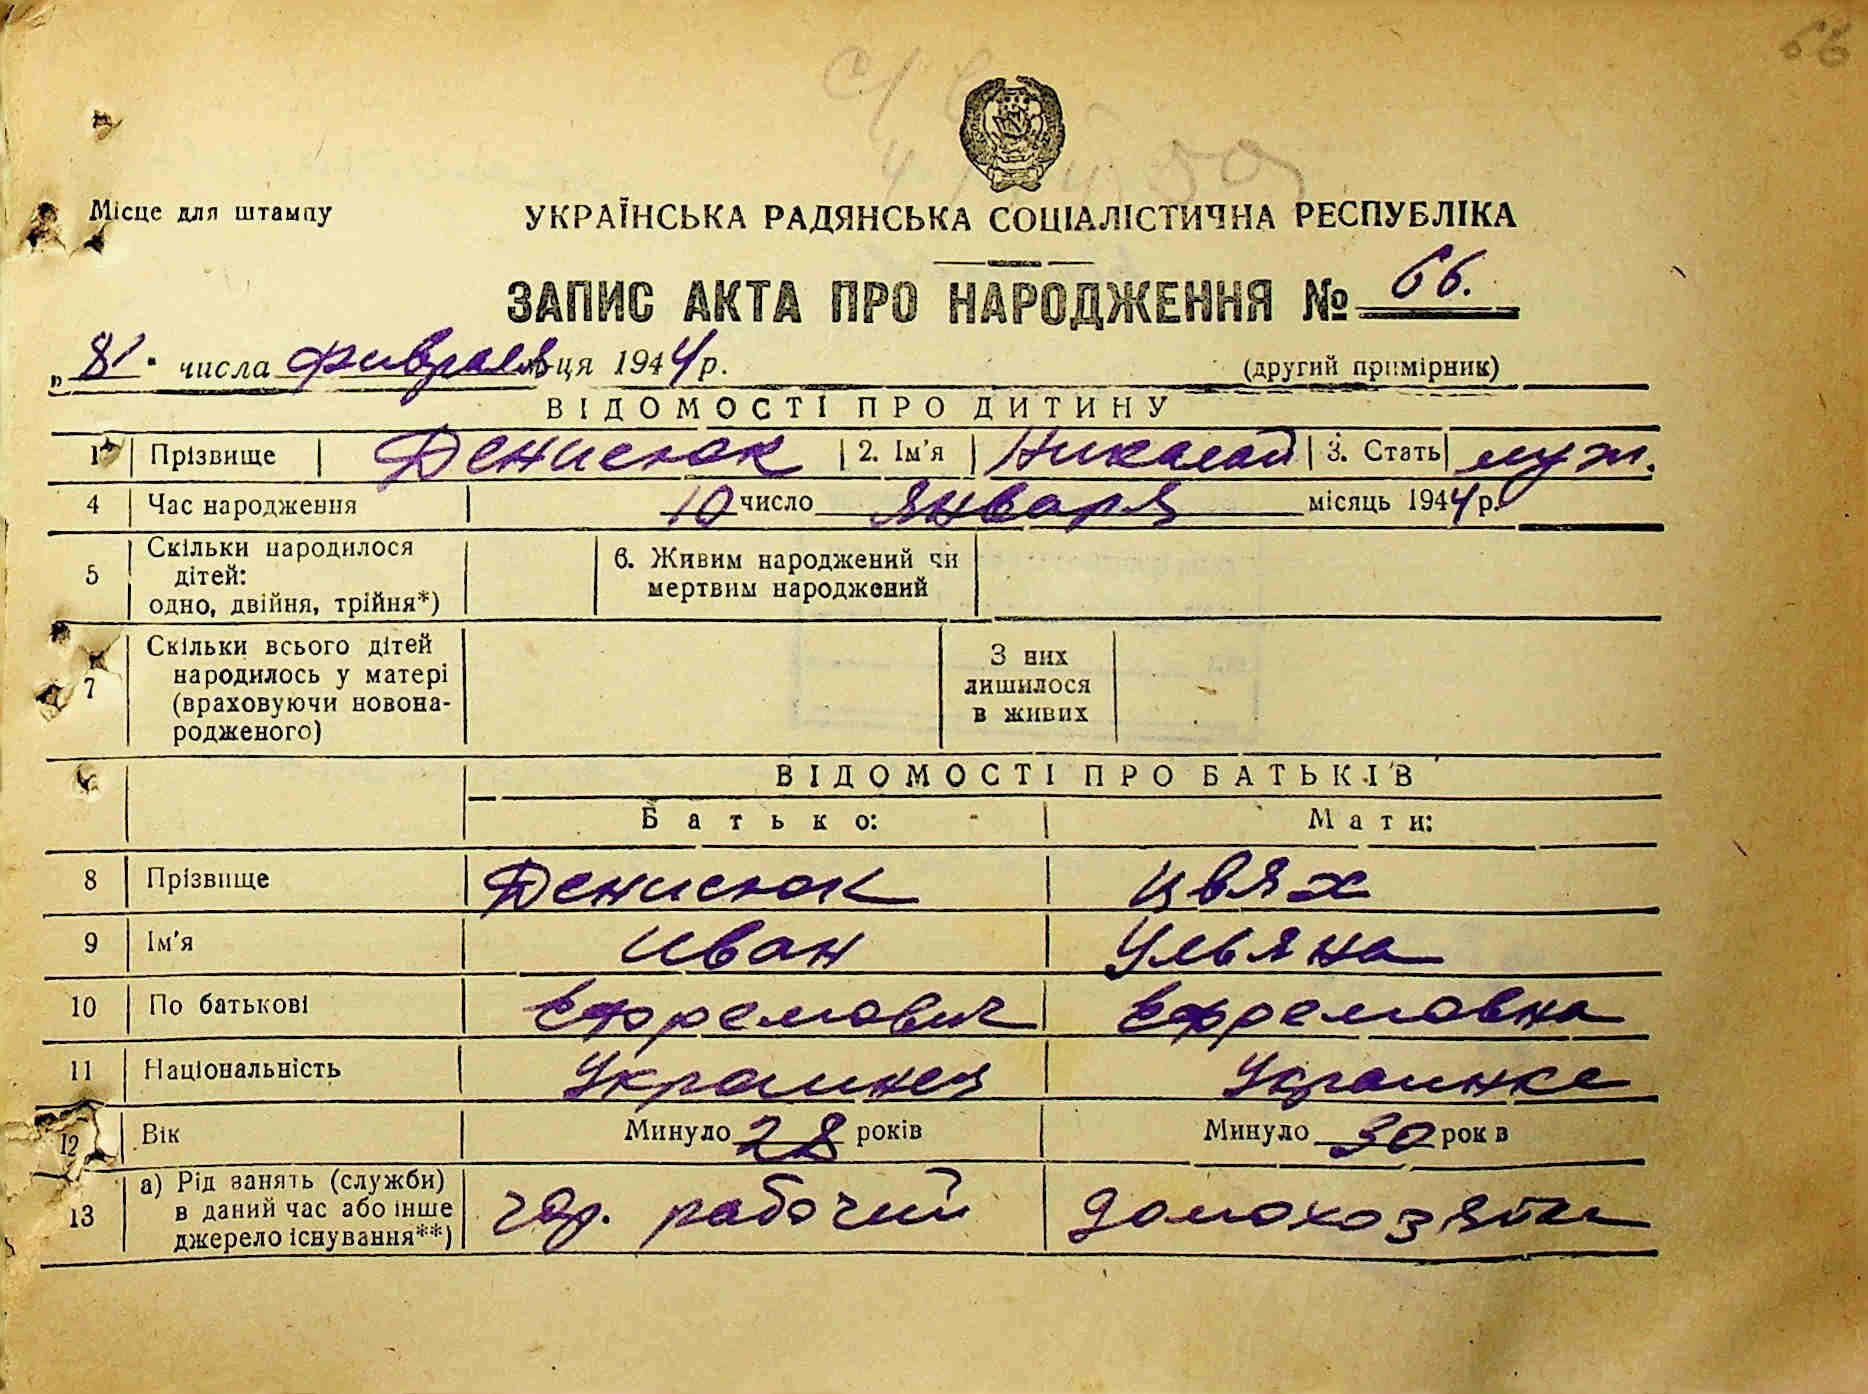 66
Місце для штампу
УКРАЇНСЬКА РАДЯНСЬКА СОЦІАЛІСТИЧНА РЕСПУБЛІКА
ЗАПИС АКТА ПРО НАРОДЖЕННЯ № 66.
„8" числа февраля м-ця 1944 р. (другий примірник)
ВІДОМОСТІ ПРО ДИТИНУ
1 Прізвище Денисюк 2. Ім'я Николай 3. Стать муж.
4 Час народження 10 число января місяць 1944 р.
5 Скільки народилося дітей: одно, двійня, трійня*) 6. Живим народжений чи мертвим народжений
7 Скільки всього дітей народилось у матері (враховуючи новонародженого) З них лишилося в живих
ВІДОМОСТІ ПРО БАТЬКІВ
Батько: Мати:
8 Прізвище Денисюк Цвях
9 Ім'я Иван Ульяна
10 По батькові Ефремович Ефремовна
11 Національність Украинец Украинка
12 Вік Минуло 28 років Минуло 30 років
13 а) Рід занять (служби) в даний час або інше джерело існування**) рабочий домохозяйка